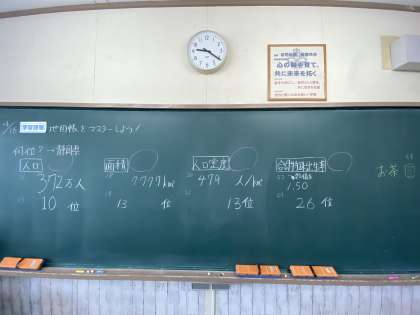 学習課題 地図帳をマスターしよう!
何位?→静岡県
人口
372万人
10位
面積
7777km²
13位
人口密度
479人/km²
13位
合計特殊出生率
1.50
26位
お茶
心の種を育て、
共に未来を拓く